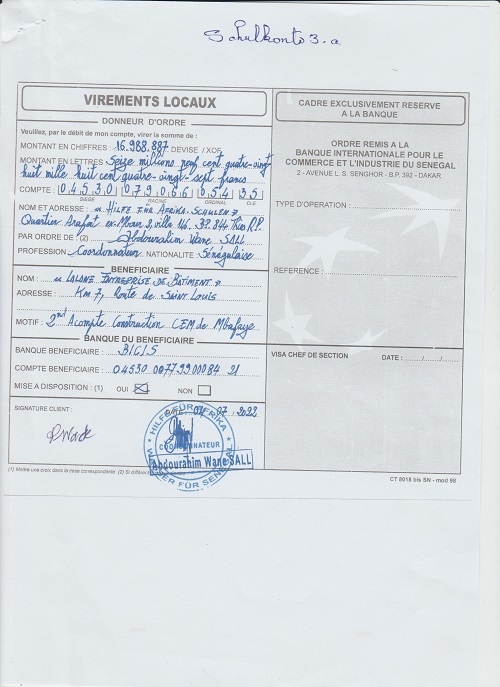 Schulkonto 3.a
VIREMENTS LOCAUX
DONNEUR D'ORDRE
Veuillez, par le débit de mon compte, virer la somme de :
MONTANT EN CHIFFRES : 16.988.887 DEVISE / XOF
MONTANT EN LETTRES Seize millions neuf cent quatre-vingt
huit mille huit cent quatre-vingt-sept francs
COMPTE : 04530 079066 054 35
SIEGE RACINE ORDINAL CLE
NOM ET ADRESSE : " HILFE FÜR AFRIKA. SCHULEN "
Quartier Arafat ex-Mbour 2, villa 146. BP. 844 Thiès R.P.
PAR ORDRE DE : (2) Abdourahim Wane SALL
PROFESSION Coordonnateur NATIONALITE Sénégalaise
BENEFICIAIRE
NOM : " LALANE ENTREPRISE DE BÂTIMENT "
ADRESSE : Km 7, Route de SAINT LOUIS
MOTIF : 2nd Acompte Construction CEM de Mbafaye
BANQUE DU BENEFICIAIRE
BANQUE BENEFICIAIRE : BICIS
COMPTE BENEFICIAIRE : 04530 007799 00084 21
MISE A DISPOSITION : (1) OUI NON
SIGNATURE CLIENT : 07 / 2022
HILFE FÜR AFRIKA
COORDONNATEUR
Abdourahim Wane SALL
FÜR SENEGAL
(1) Mettre une croix dans la case correspondante (2) Si différent
CADRE EXCLUSIVEMENT RESERVE
A LA BANQUE
ORDRE REMIS A LA
BANQUE INTERNATIONALE POUR LE
COMMERCE ET L'INDUSTRIE DU SENEGAL
2 - AVENUE L. S. SENGHOR - B.P. 392 - DAKAR
TYPE D'OPERATION :
REFERENCE :
VISA CHEF DE SECTION DATE : / /
CT 8018 bis SN - mod 98